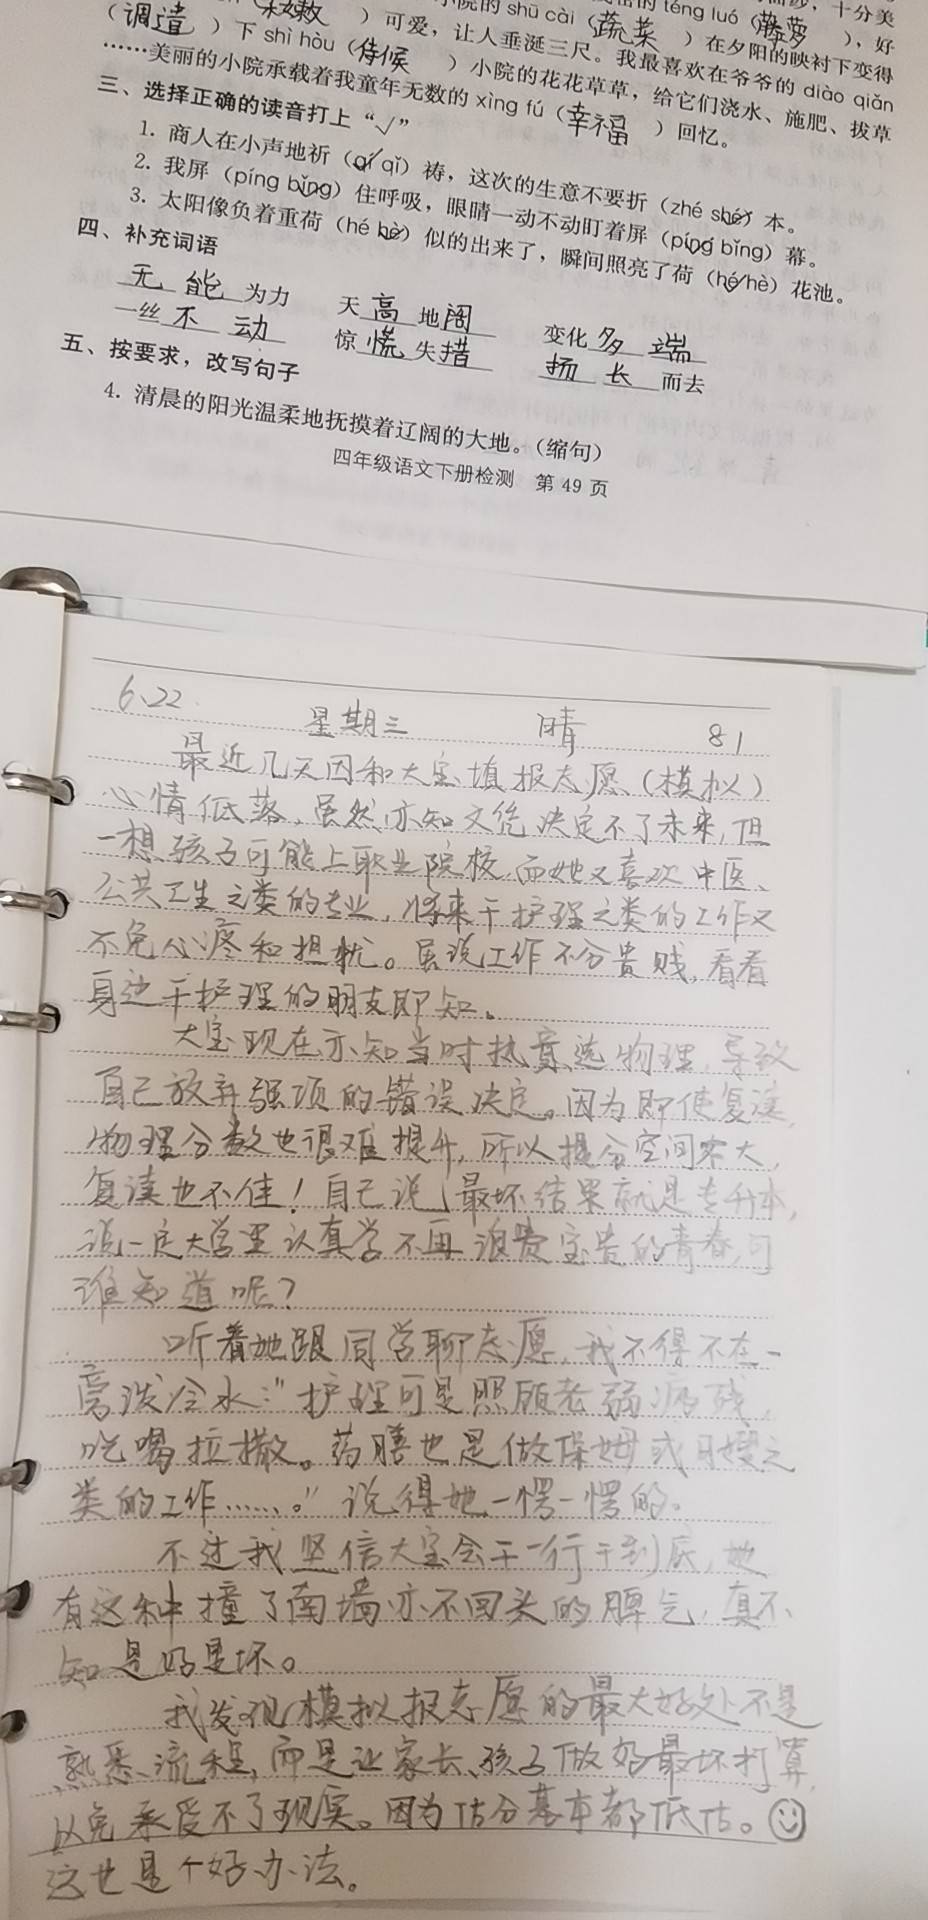 院的 shū cài（蔬菜）在夕阳的映衬下变得
téng luó（藤萝），好
十分美
（调遣）下 shì hòu（侍候）小院的花花草草，给它们浇水、施肥、拔草
）可爱，让人垂涎三尺。我最喜欢在爷爷的 diào qiǎn
……美丽的小院承载着我童年无数的 xìng fú（幸福）回忆。
三、选择正确的读音打上“√”
1. 商人在小声地祈（qí qǐ）祷，这次的生意不要折（zhé shé）本。
2. 我屏（píng bǐng）住呼吸，眼睛一动不动盯着屏（píng bǐng）幕。
3. 太阳像负着重荷（hé hè）似的出来了，瞬间照亮了荷（hé hè）花池。
四、补充词语
无能为力 天高地阔 变化多端
一丝不动 惊慌失措 扬长而去
五、按要求，改写句子
4. 清晨的阳光温柔地抚摸着辽阔的大地。（缩句）
四年级语文下册检测 第 49 页
6、22 星期三 晴 81
最近几天因和大宝填报志愿（模拟）
心情低落，虽然亦知文凭决定不了未来，但
一想孩子可能上职业院校，而她又喜欢中医、
公共卫生之类的专业，将来干护理之类的工作又
不免心疼和担忧。虽说工作不分贵贱，看看
身边干护理的朋友即知。
大宝现在亦知当时执意选物理，导致
自己放弃强项的错误决定。因为即使复读，
物理分数也很难提升，所以提分空间不大，
复读也不佳！自己说，最坏结果就是专升本，
说一定大学里认真学不再浪费宝贵的青春，可
谁知道呢？
听着她跟同学聊志愿，我不得不在一
旁泼冷水：“护理可是照顾老弱病残，
吃喝拉撒。药膳也是做保姆或月嫂之
类的工作……。”说得她一愣一愣的。
不过我坚信大宝会干一行干到底，她
有这种撞了南墙亦不回头的脾气，真不
知是好是坏。
我发现模拟报志愿的最大好处不是
熟悉流程，而是让家长、孩子做好最坏打算，
以免承受不了现实。因为估分基本都低估。
这也是个好办法。